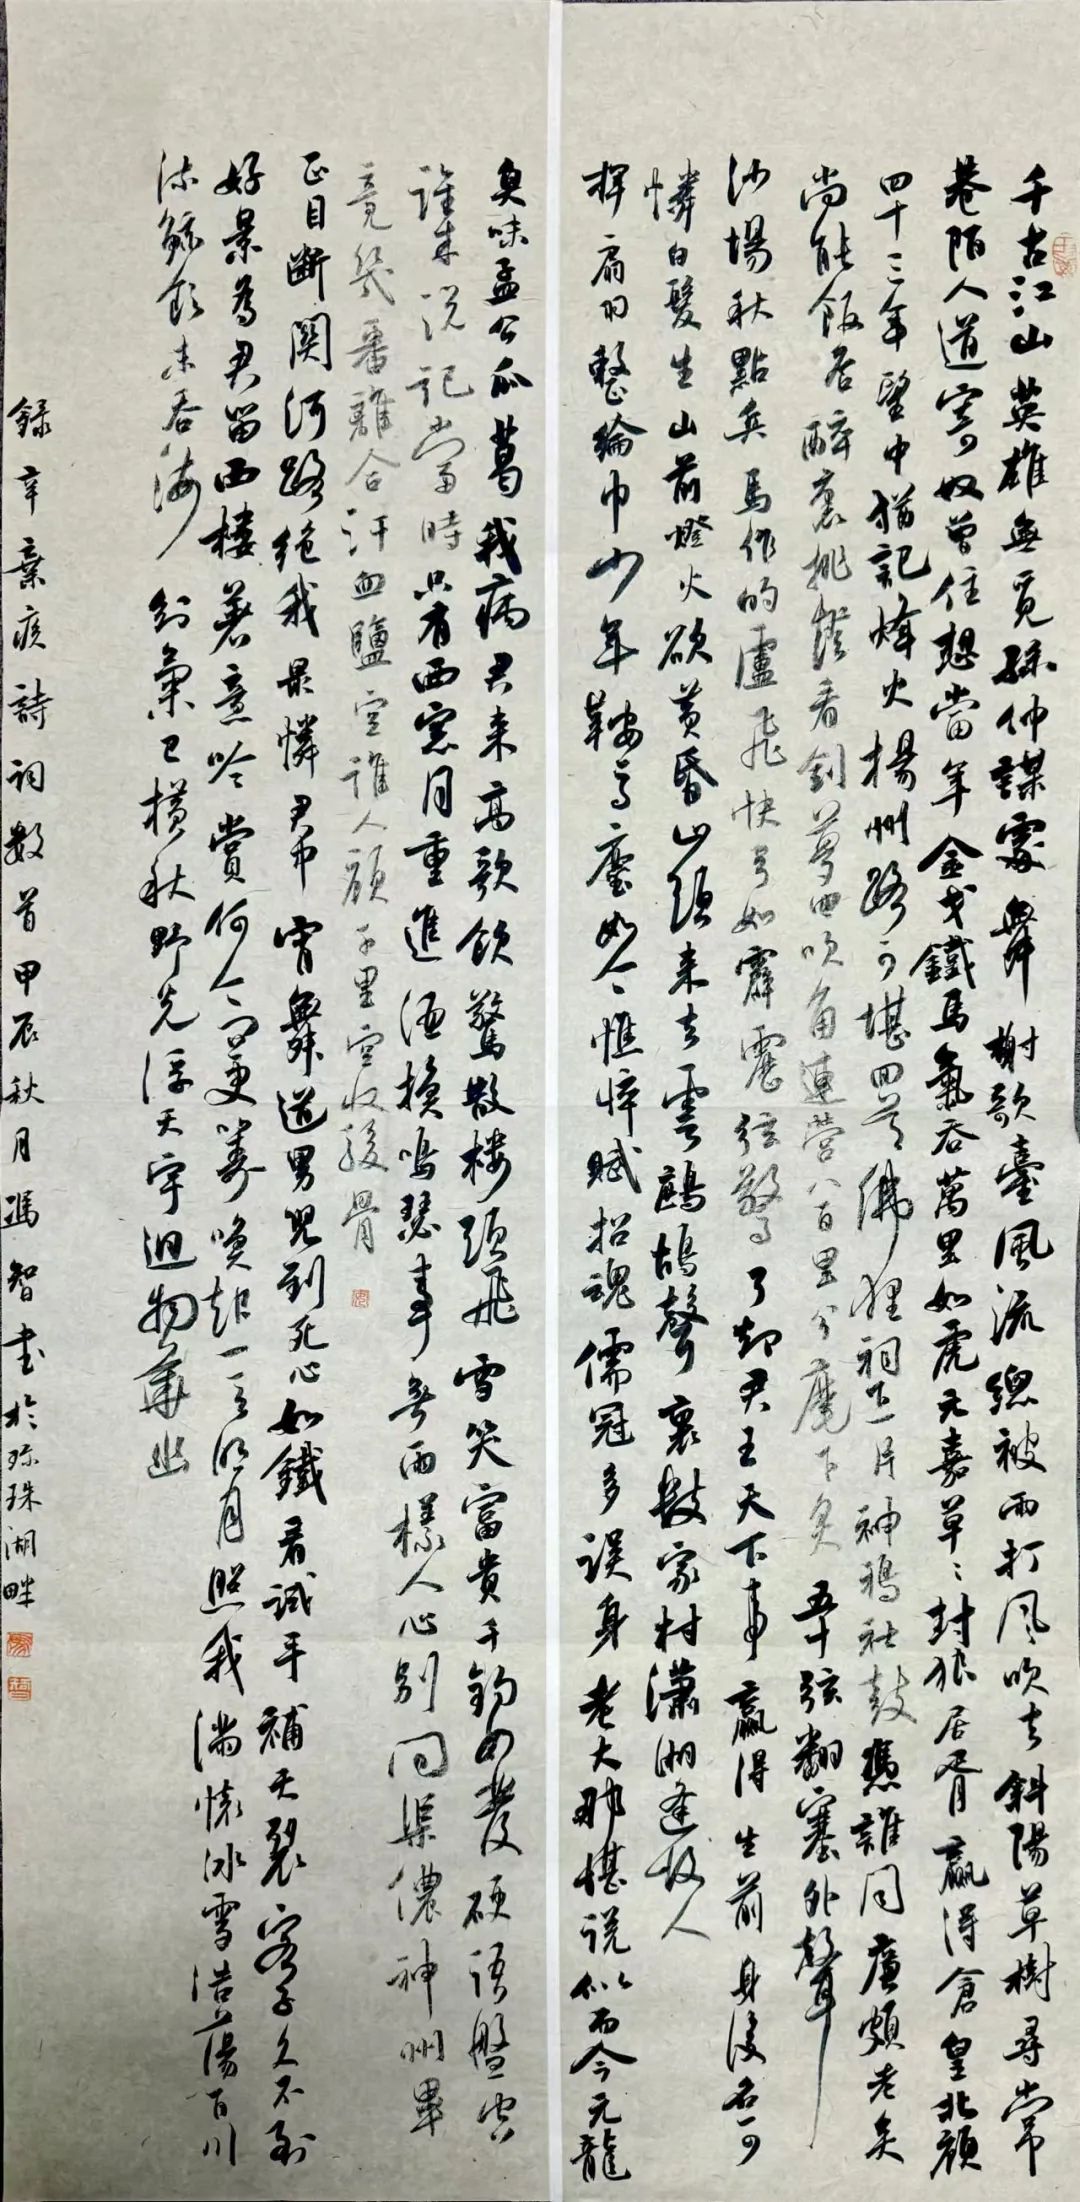 千古江山英雄無覓孫仲謀處舞榭歌臺風流總被雨打風吹去斜陽草樹尋常
巷陌人道寄奴曾住想當年金戈鐵馬氣吞萬里如虎元嘉草草封狼居胥贏得倉皇北顧
四十三年望中猶記烽火揚州路可堪回首佛狸祠下一片神鴉社鼓憑誰問廉頗老矣
尚能飯否醉裏挑燈看劍夢回吹角連營八百里分麾下炙五十弦翻塞外聲
沙場秋點兵馬作的盧飛快弓如霹靂弦驚了却君王天下事贏得生前身後名可
憐白髮生山前燈火欲黄昏山頭來去雲鷓鴣聲裏數家村瀟湘逢故人
揮扇羽整綸巾少年鞍馬塵如今憔悴賦招魂儒冠多誤身老大那堪説似而今元龍
臭味孟公瓜葛我病君来高歌飲驚散樓頭飛雪笑富貴千鈞如髮硬語盤空
誰来説記當時只有西窓月重進酒換鳴瑟事無兩樣人心別問渠儂神州畢
竟幾番離合汗血鹽空誰人顧千里空收駿骨
正目斷關河路絶我最憐君中宵舞道男兒到死心如鐵看試手補天裂客子久不到
好景為君留西樓著意吟賞何必問更籌喚起一天明月照我滿懷冰雪浩蕩百川
流鯨飲未吞海劍氣已横秋野光浮天宇迥物華幽
録辛棄疾詩詞數首甲辰秋月馮智書於珎珠湖畔